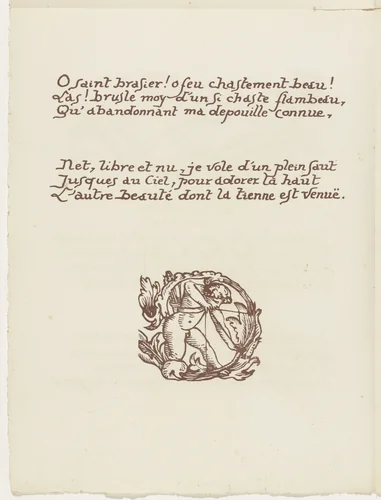 O saint brasier! o feu chastement beau!
Las! brusle moy d'un si chaste flambeau,
Qu'abandonnant ma depouille connue,
Net, libre et nu, je vole d'un plein saut
Jusques au Ciel, pour adorer la haut
L'autre beauté dont la tienne est venuë.